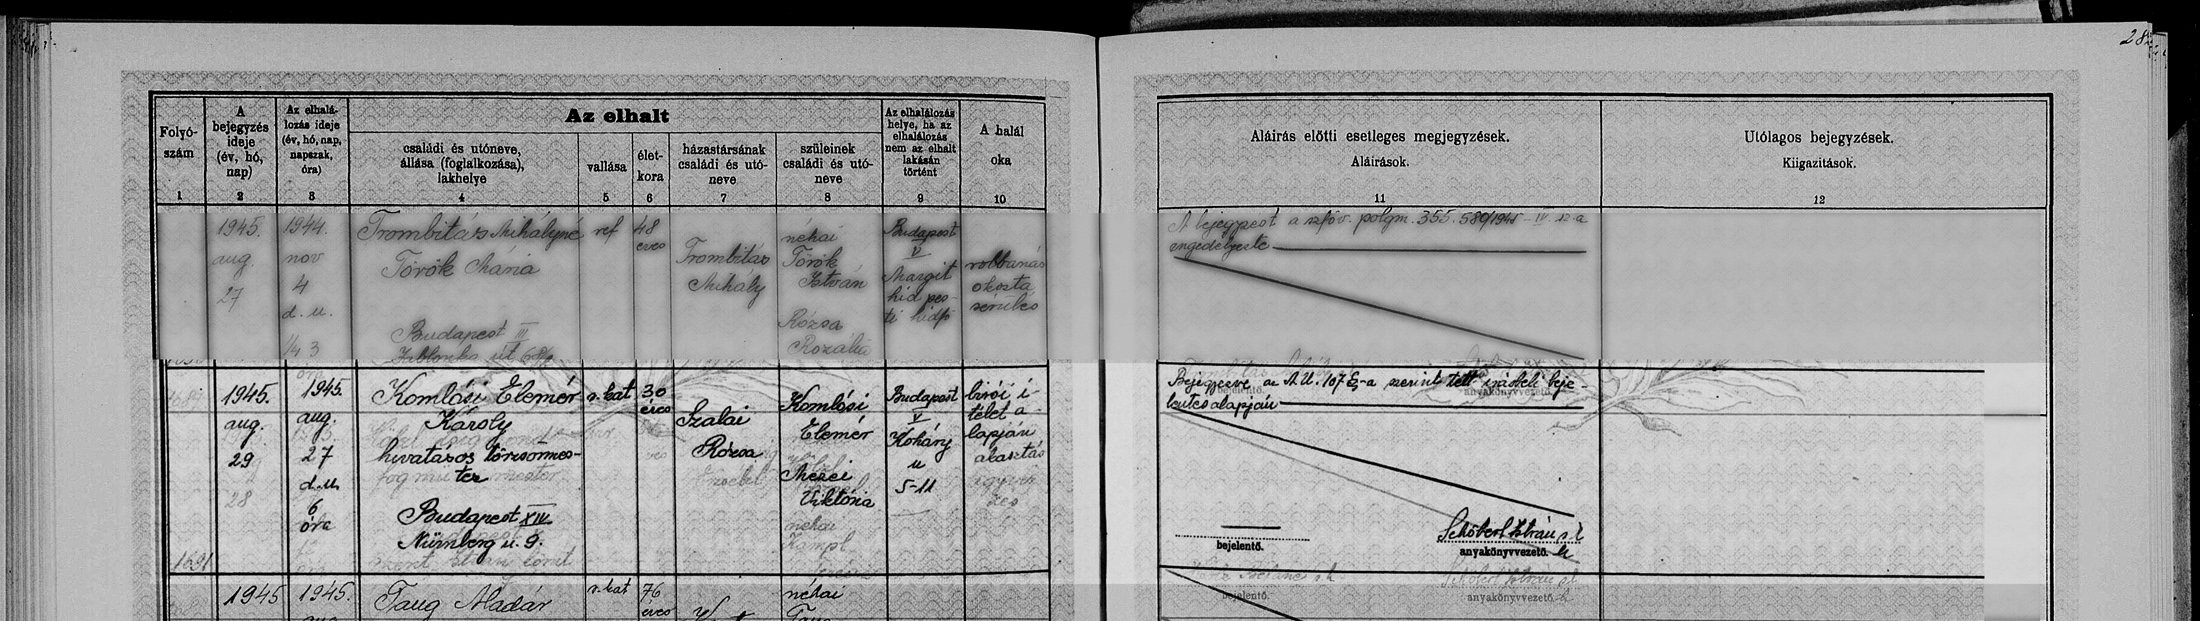 28
Folyó-
szám
A
bejegyzés
ideje
(év, hó,
nap)
Az elhalá-
lozás ideje
(év, hó, nap,
napszak,
óra)
Az elhalt
családi és utóneve,
állása (foglalkozása),
lakhelye
vallása
élet-
kora
házastársának
családi és utó-
neve
szüleinek
családi és utó-
neve
Az elhalálozás
helye, ha az
elhalálozás
nem az elhalt
lakásán
történt
A halál
oka
Aláírás előtti esetleges megjegyzések.
Aláírások.
Utólagos bejegyzések.
Kiigazítások.
1 2 3 4 5 6 7 8 9 10 11 12
1945.
aug.
27
1944.
nov
4
d. u.
1/4 3
óra
Trombitás Mihályné
Török Mária
Budapest III
Jablonka út
ref
48
éves
Trombitás
Mihály
néhai
Török
István
Rózsa
Rozália
Budapest
V
Margit
hid pes-
ti hídfő
robbanás
okozta
sérülés
A bejegyzést a szföv. polgm. 355.589/1945-IV. sz. a
engedélyezte
1691
1945.
aug.
29
1945.
aug.
27
d. u.
6
óra
Komlósi Elemér
Károly
hivatásos törzsőrmes-
ter
Budapest XIV
Nürnberg u. 9.
r. kat
30
éves
Szalai
Rózsa
Komlósi
Elemér
Mezei
Viktória
Budapest
V
Koháry
u
5-11
birói i-
télet a-
lapján
akasztás
Bejegyezve a A.U. 107 §-a szerint tett írásbeli beje-
lentés alapján
bejelentő.
Schóbert István s. k.
anyakönyvvezető. h
1945
1945.
Taug Aladár
r. kat
76
éves
néhai
Taug
bejelentő.
anyakönyvvezető.